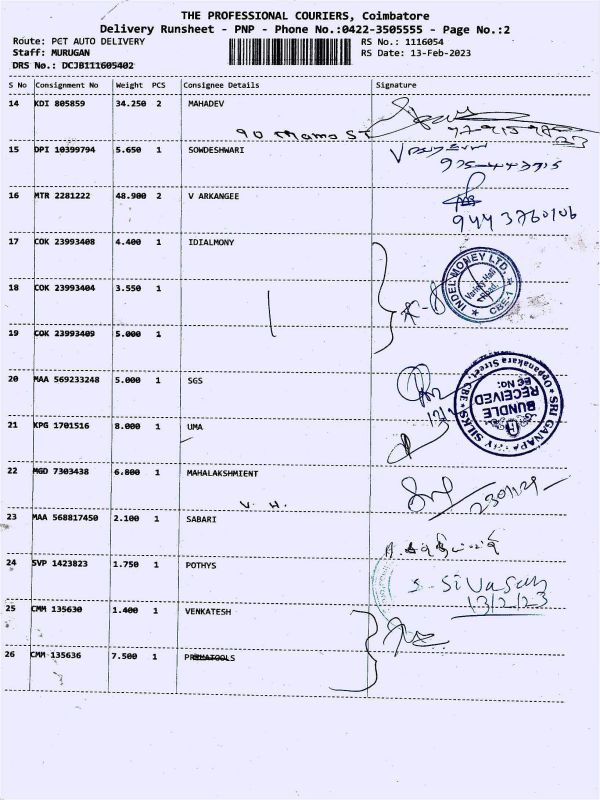 THE PROFESSIONAL COURIERS, Coimbatore
Delivery Runsheet - PNP - Phone No.:0422-3505555 - Page No.:2
Route: PCT AUTO DELIVERY RS No.: 1116054
Staff: MURUGAN RS Date: 13-Feb-2023
DRS No.: DCJB111605402
S No Consignment No Weight PCS Consignee Details Signature
14 KDI 805859 34.250 2 MAHADEV
15 DPI 10399794 5.650 1 SOWDESHWARI
16 MTR 2281222 48.900 2 V ARKANGEE
9443760106
17 COK 23993408 4.400 1 IDIALMONY
18 COK 23993404 3.550 1
INDEL MONEY LTD.
Variety Hall Road,
CBE-1
19 COK 23993409 5.000 1
20 MAA 569233248 5.000 1 SGS
Oppanakara Street, CBE
BUNDLE
RECEIVED
21 KPG 1701516 8.000 1 UMA
22 MGD 7303438 6.800 1 MAHALAKSHMIENT
V. H.
23 MAA 568817450 2.100 1 SABARI
24 SVP 1423823 1.750 1 POTHYS
S. Sivasan
13/2/23
25 CMM 135630 1.400 1 VENKATESH
26 CMM 135636 7.500 1